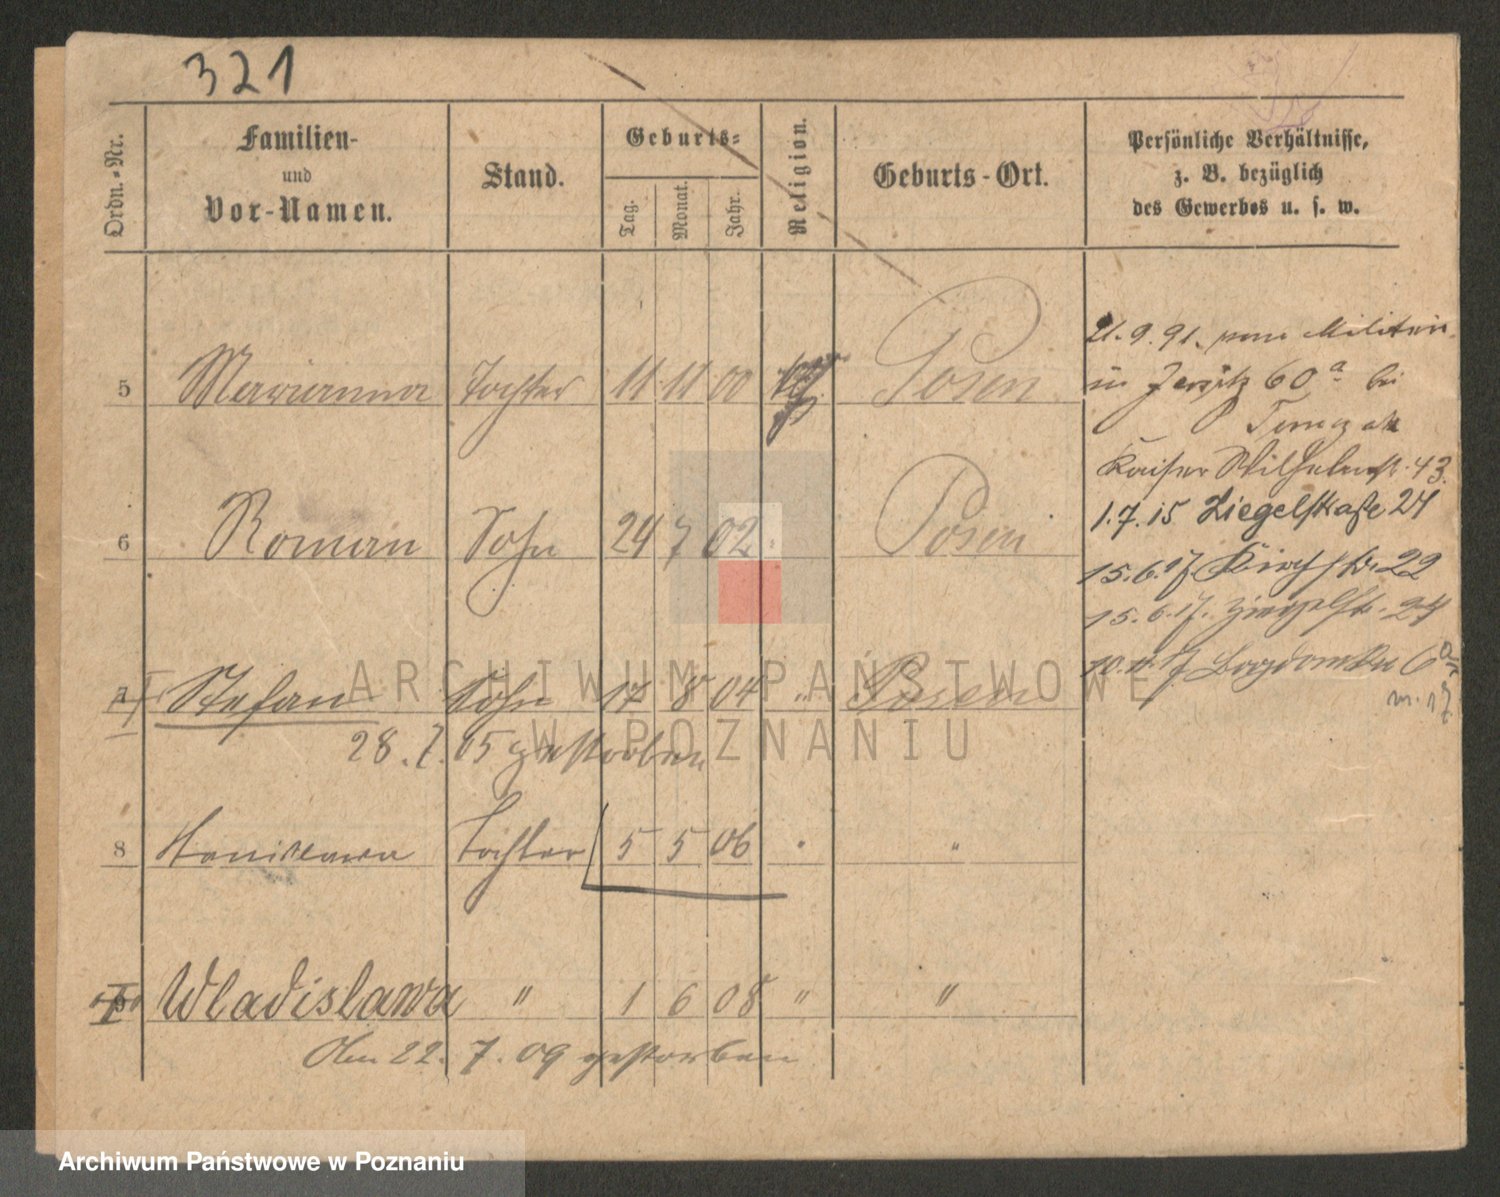 321
Ordn.-Nr.
Familien-
und
Vor-Namen.
Stand.
Geburts-
Tag.
Monat.
Jahr.
Religion.
Geburts-Ort.
Persönliche Verhältnisse,
z. B. bezüglich
des Gewerbes u. s. w.
5 Marianna Tochter 11 11 00 Posen
6 Roman Sohn 24 7 02 Posen
Stefan Sohn 17 8 04 " Posen
28. 7. 05 gestorben
8 Stanislawa Tochter 5 5 06 "
Wladislawa " 1 6 08 " "
Am 22. 7. 09 gestorben
21. 9. 91. vom Militär
in Jersitz 60a bei
Kaiser Wilhelmstr. 43.
1.7.15 Ziegelstraße 24
15.6.17. Kirchstr. 22
15.6.17. Ziegelstr. 24
ARCHIWUM PAŃSTWOWE
W POZNANIU
Archiwum Państwowe w Poznaniu